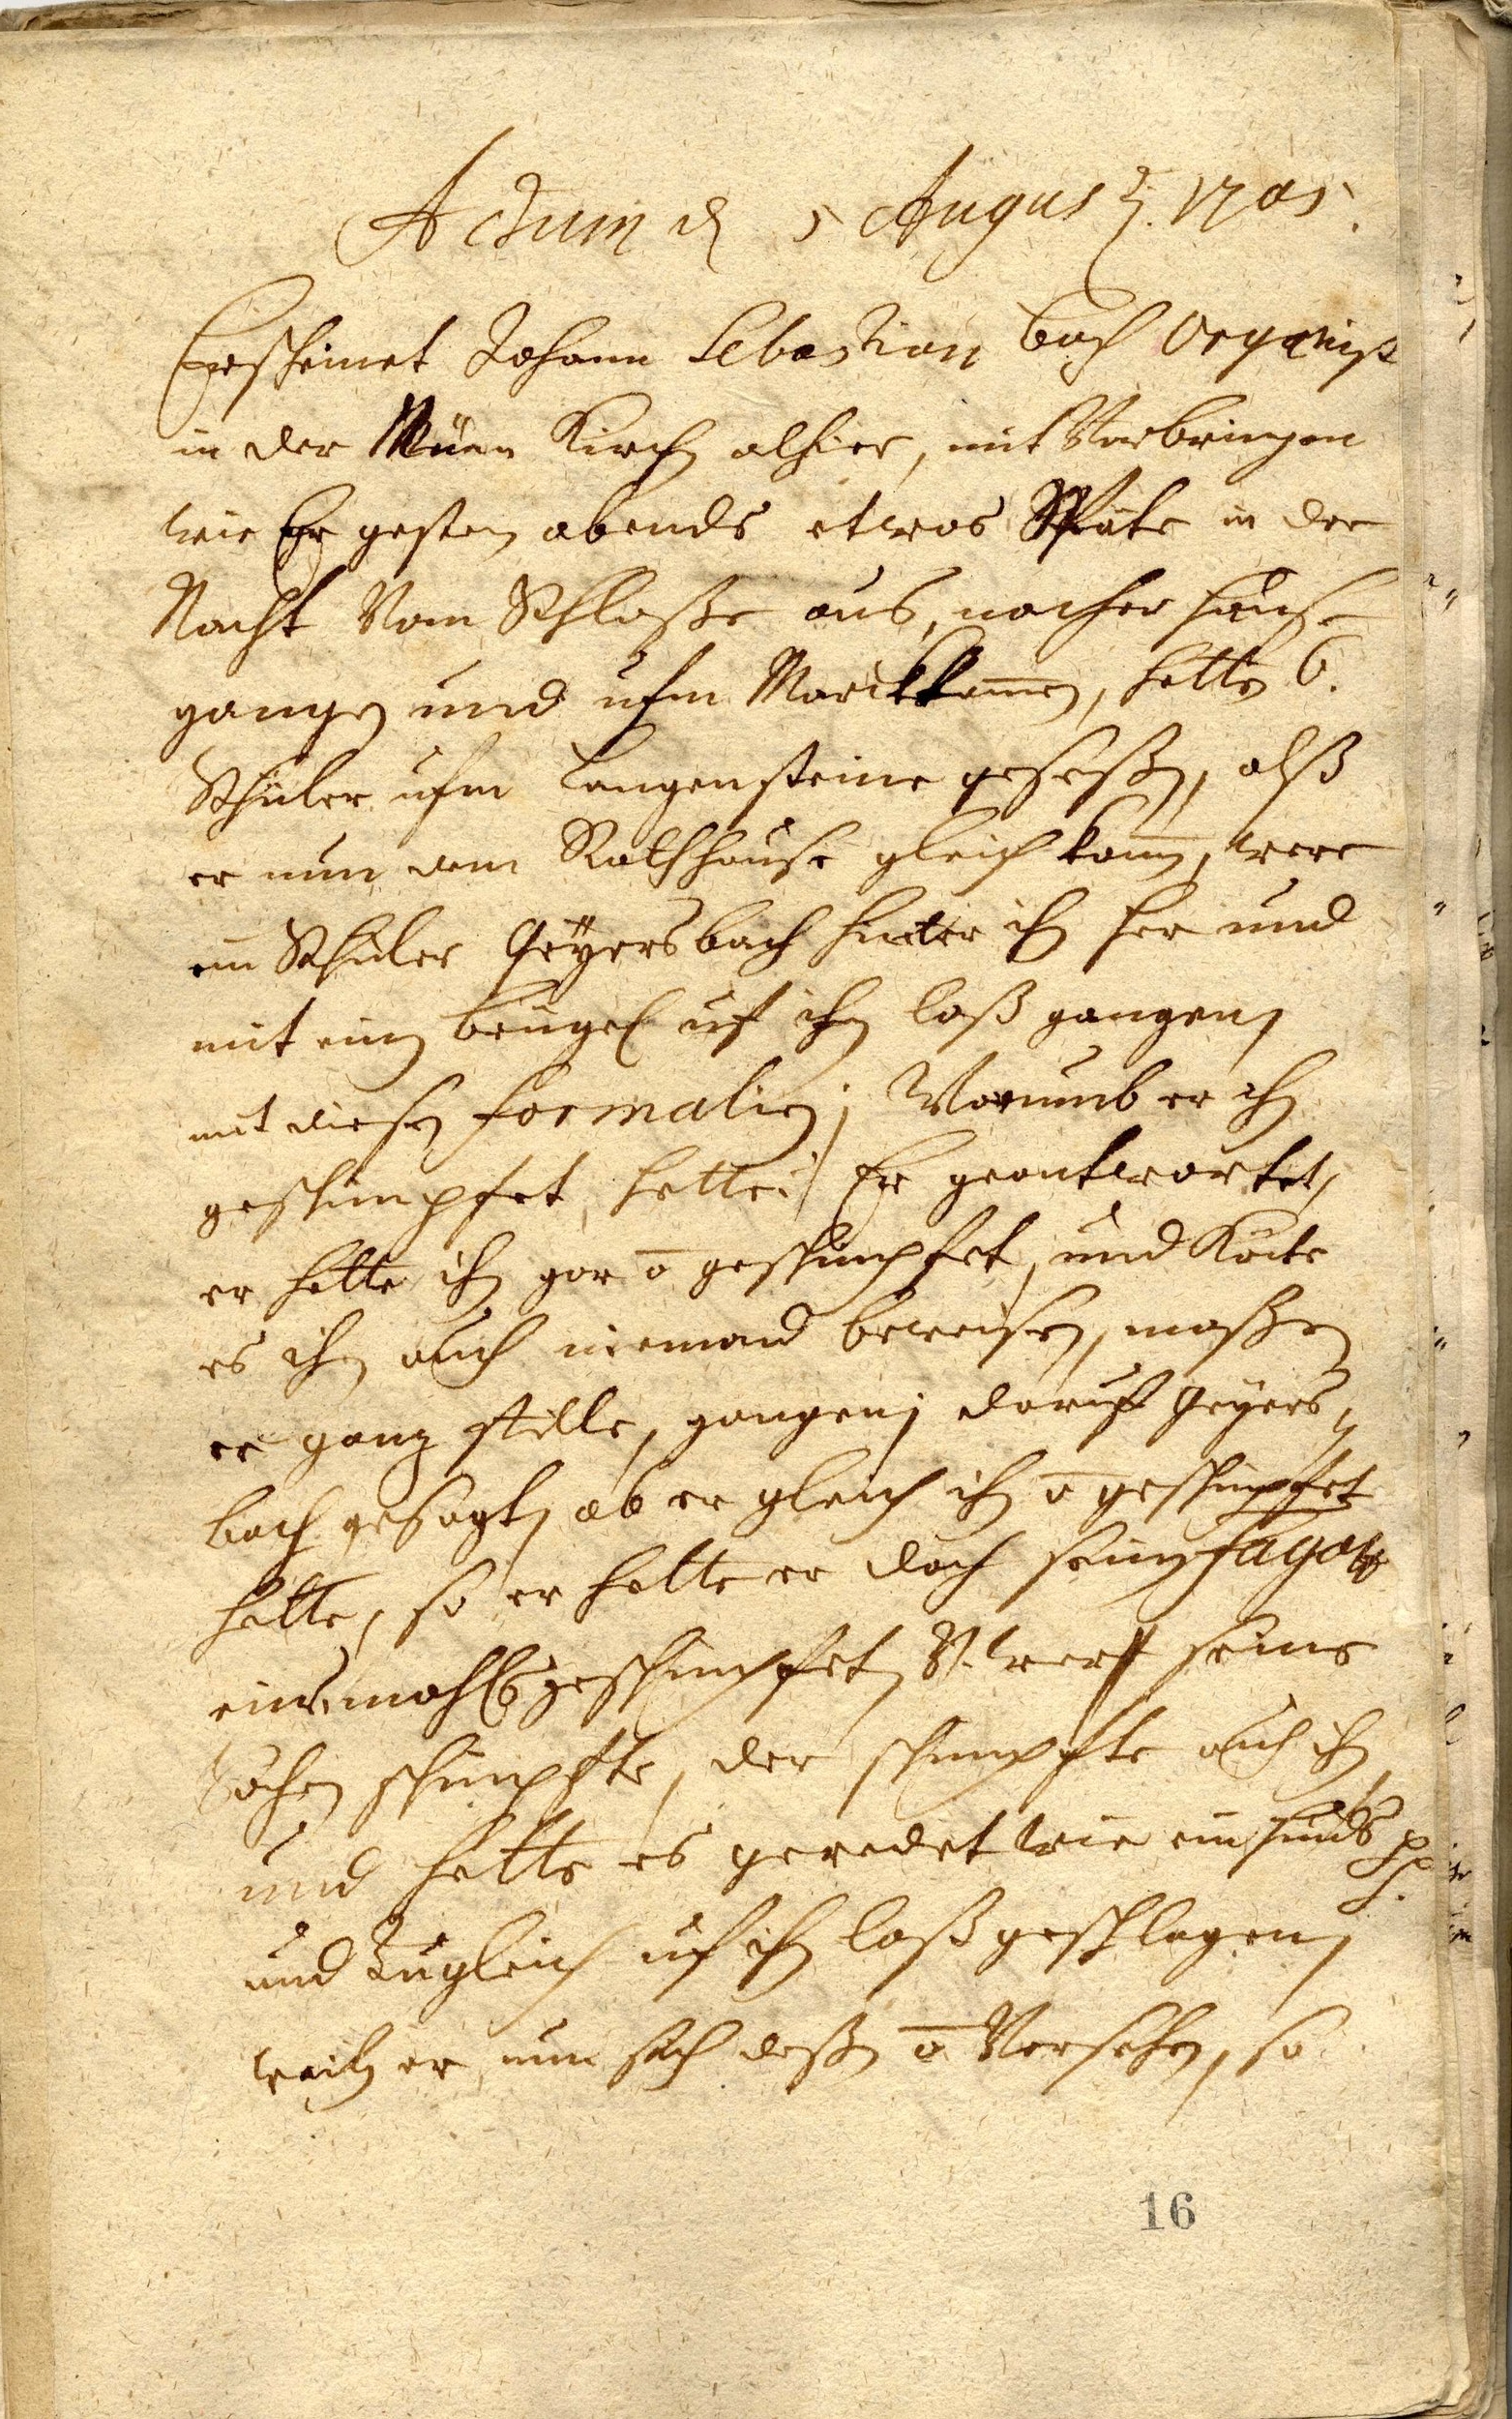 Actum d 5 August: 1705.
Erscheinet Johann Sebastian Bach Organist
in der Neüen Kirch alhier, mit Vorbringen
wie Er gestern abends etwas Späte in der
Nacht Vom Schloße aus, nacher Hause
gangen und ufm Marckt kom̄en, hetten 6.
Schüler ufm Langensteine geseßen, alß
er nun dem Rathhause gleich kom̄en, were
ein Schüler Geÿersbach hinter ihn her und
mit einen brügel uf ihn loß gangen,
mit diesen formalien; Warumb er ihn
geschimpfet hette? Er geantwortet,
er hette ihn gar ō geschimpfet, und könte
es ihm auch niemand beweisen, maßen
er ganz stille, gangen; daruf Geyers-
bach gesagt, ob er gleich ihn ō geschimpfet
hette, so er hette er doch seinen fagott
einsmahls geschimpfet, V. wer seine
Sachen schimpfte, der schimpfte auch ihn
und hette es geredet wie ein hunds pp.
und Zugleich uf ihn loß geschlagen,
weiln er nun sich deßen ō Versehen, so
16